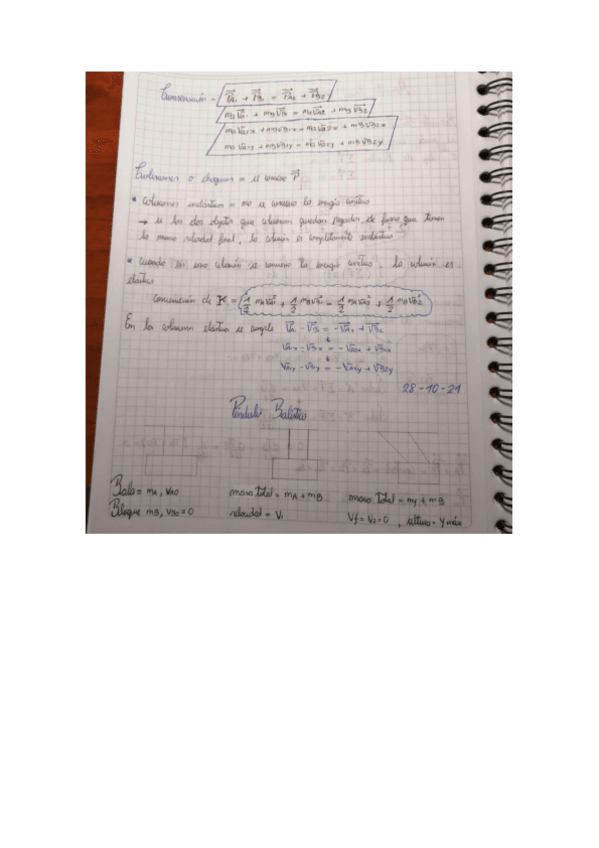 Conservación = P⃗A1 + P⃗B1 = P⃗A2 + P⃗B2
mA V⃗A1 + mB V⃗B1 = mA V⃗A2 + mB V⃗B2
mA VA1x + mB VB1x = mA VA2x + mB VB2x
mA VA1y + mB VB1y = mA VA2y + mB VB2y
Colisiones o choques = se conserva P⃗
* colisiones inelásticas = no se conserva la energía cinética
→ si los dos objetos que colisionan quedan pegados de forma que tienen
la misma velocidad final, la colisión es completamente inelástica
* cuando en una colisión se conserva la energía cinética, la colisión es
elástica
conservación de K = 1/2 mA VA1² + 1/2 mB VB1² = 1/2 mA VA2² + 1/2 mB VB2²
En las colisiones elásticas se cumple V⃗A1 - V⃗B1 = -V⃗A2 + V⃗B2
VA1x - VB1x = -VA2x + VB2x
VA1y - VB1y = -VA2y + VB2y
28-10-21
Péndulo Balístico
Bala = mA, VA0 masa total = mA + mB masa total = mA + mB
Bloque mB, VB0 = 0 velocidad = V1 Vf = V2 = 0, altura = Ymáx